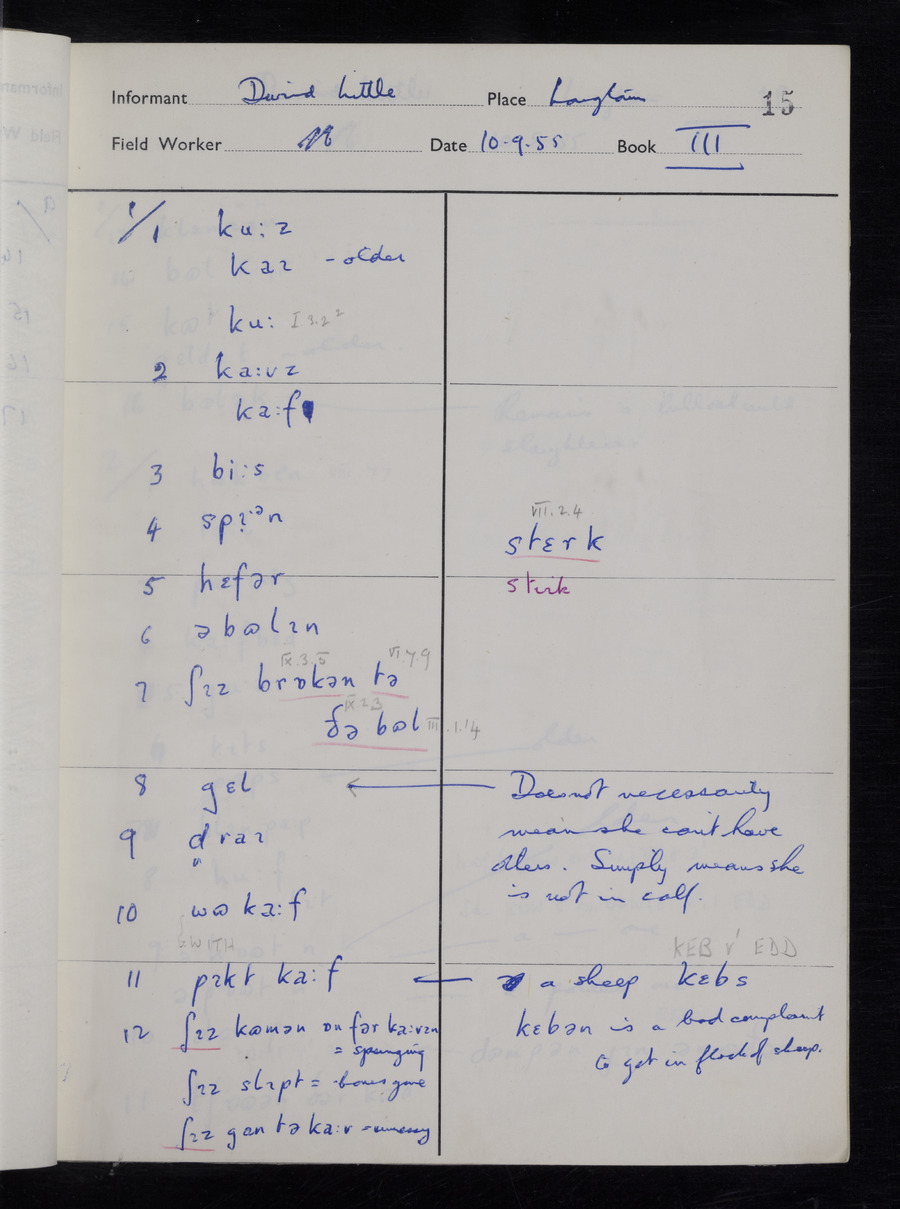 Informant David Little Place Langtoun 15
Field Worker Date 10-9-55 Book III
1/1 ku:z
kaɪ - older
ku: I 3.2²
2 ka:vz
ka:f
3 bi:s
4 spɪ:ən
VII.2.4
stɛrk
stirk
5 hɛfər
6 əbʊlɪn
IX.3.5 VI.7.9
7 ʃɪz brɒkən tə
IX.2.3
ðə bʊl III.1.14
8 gɛl ← Does not necessarily
mean she can't have
others. Simply means she
is not in calf.
9 draɪ
10 wʊ ka:f
WITH
KEB v' EDD
11 pɪkt ka:f ← a sheep kɛbs
12 ʃɪz kʊmən ɒn fər ka:vɪn
= springing
kɛbən is a bad complaint
to get in flock of sheep.
ʃɪz slɪpt = bones gone
ʃɪz gən tə ka:v =